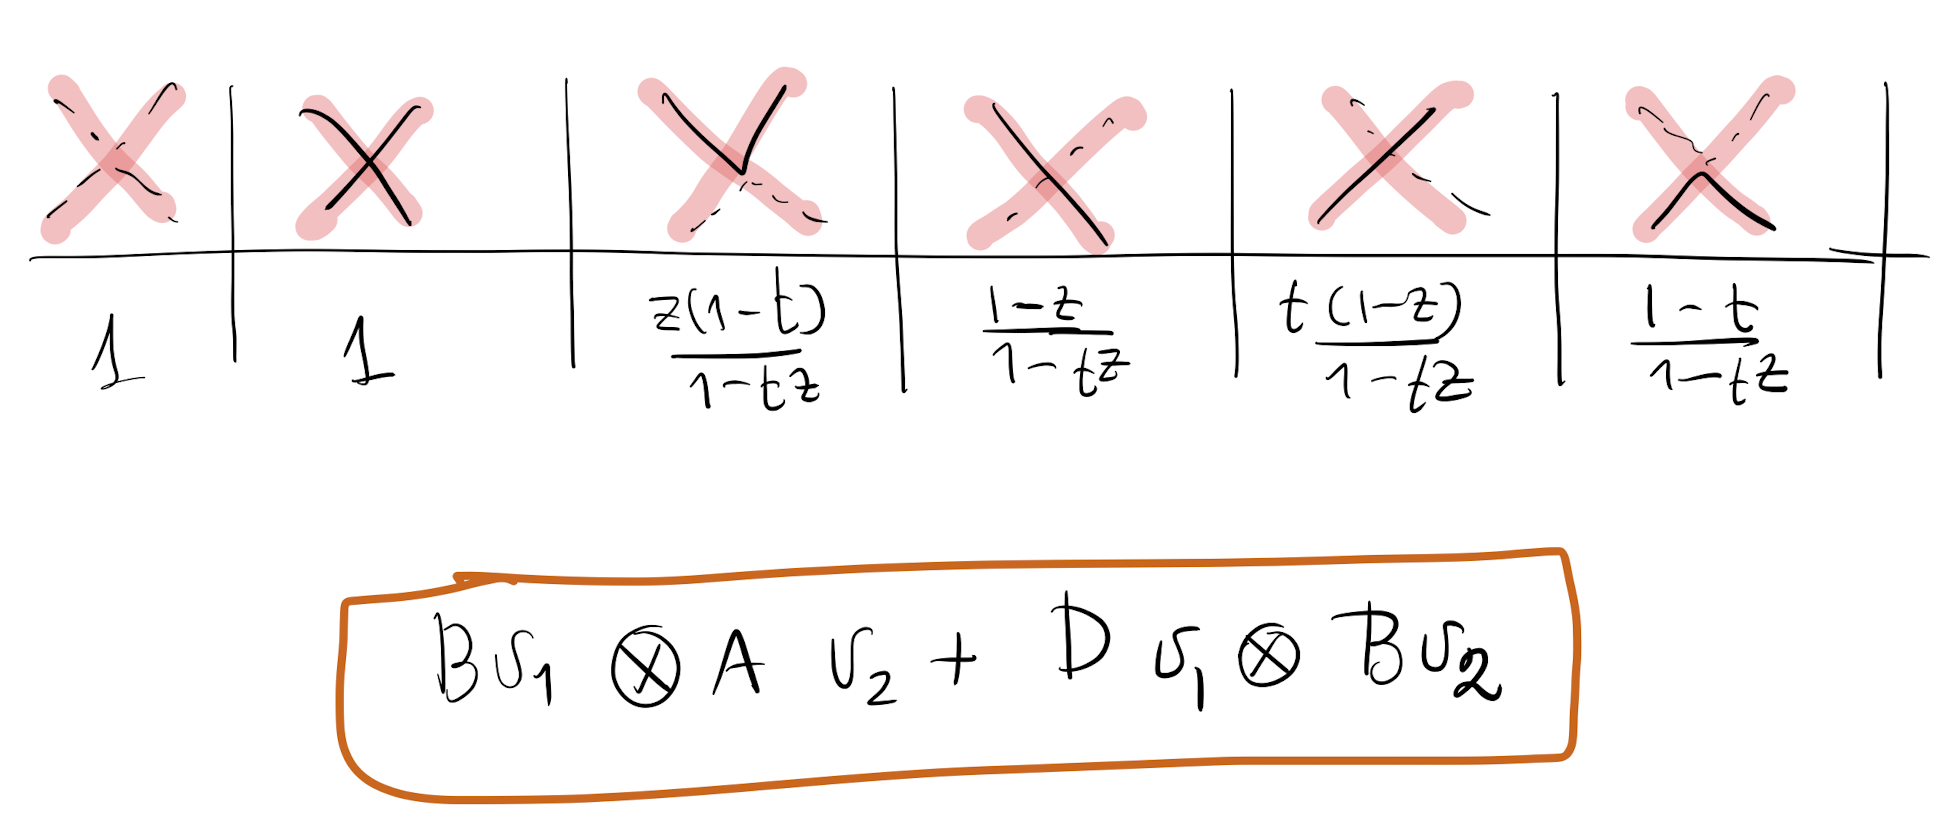 1 1 z(1-t)/(1-tz) (1-z)/(1-tz) t(1-z)/(1-tz) (1-t)/(1-tz)
Bv₁ ⊗ A v₂ + D v₁ ⊗ Bv₂